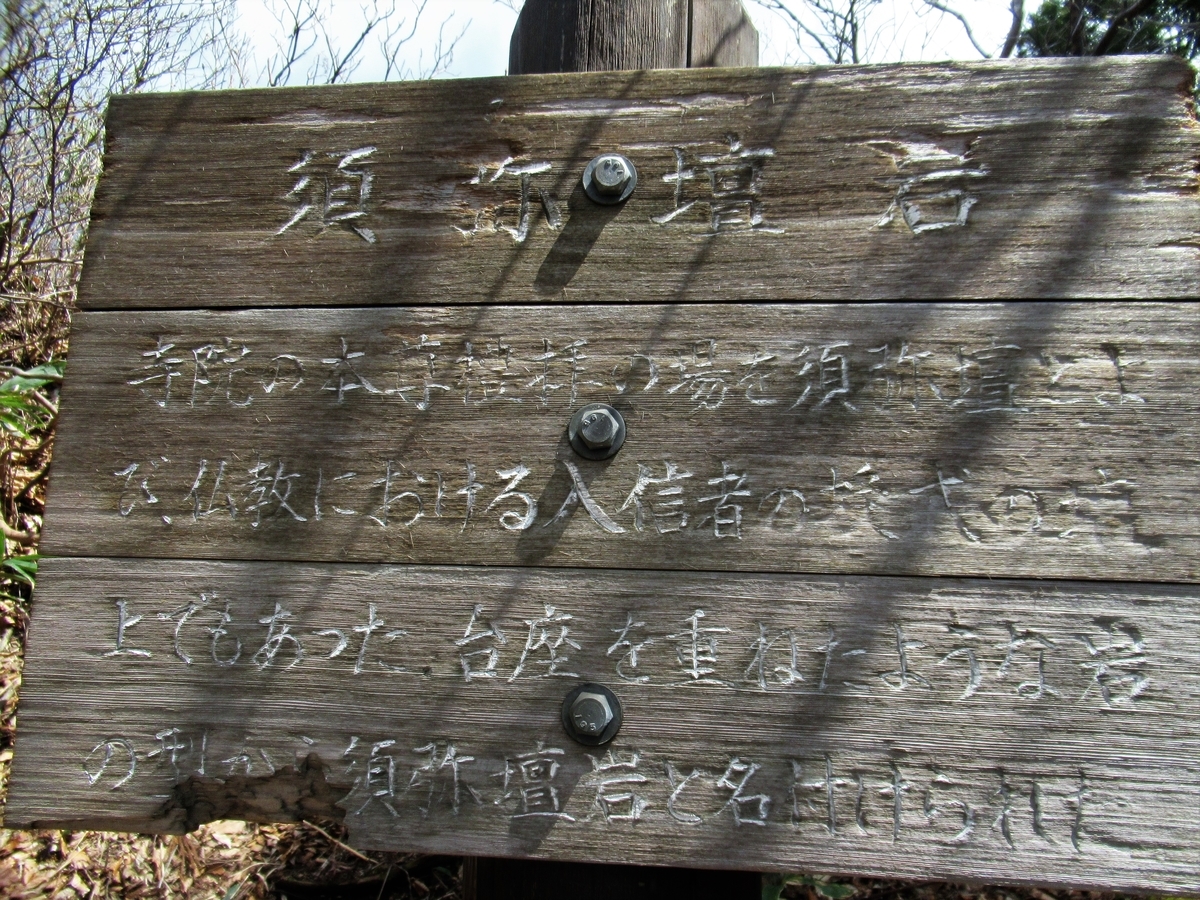 須弥壇岩
寺院の本尊礼拝の場を須弥壇とよ
び、仏教における入信者の
上であった 台座を重ねたような岩
の型から須弥壇岩と名付けられた